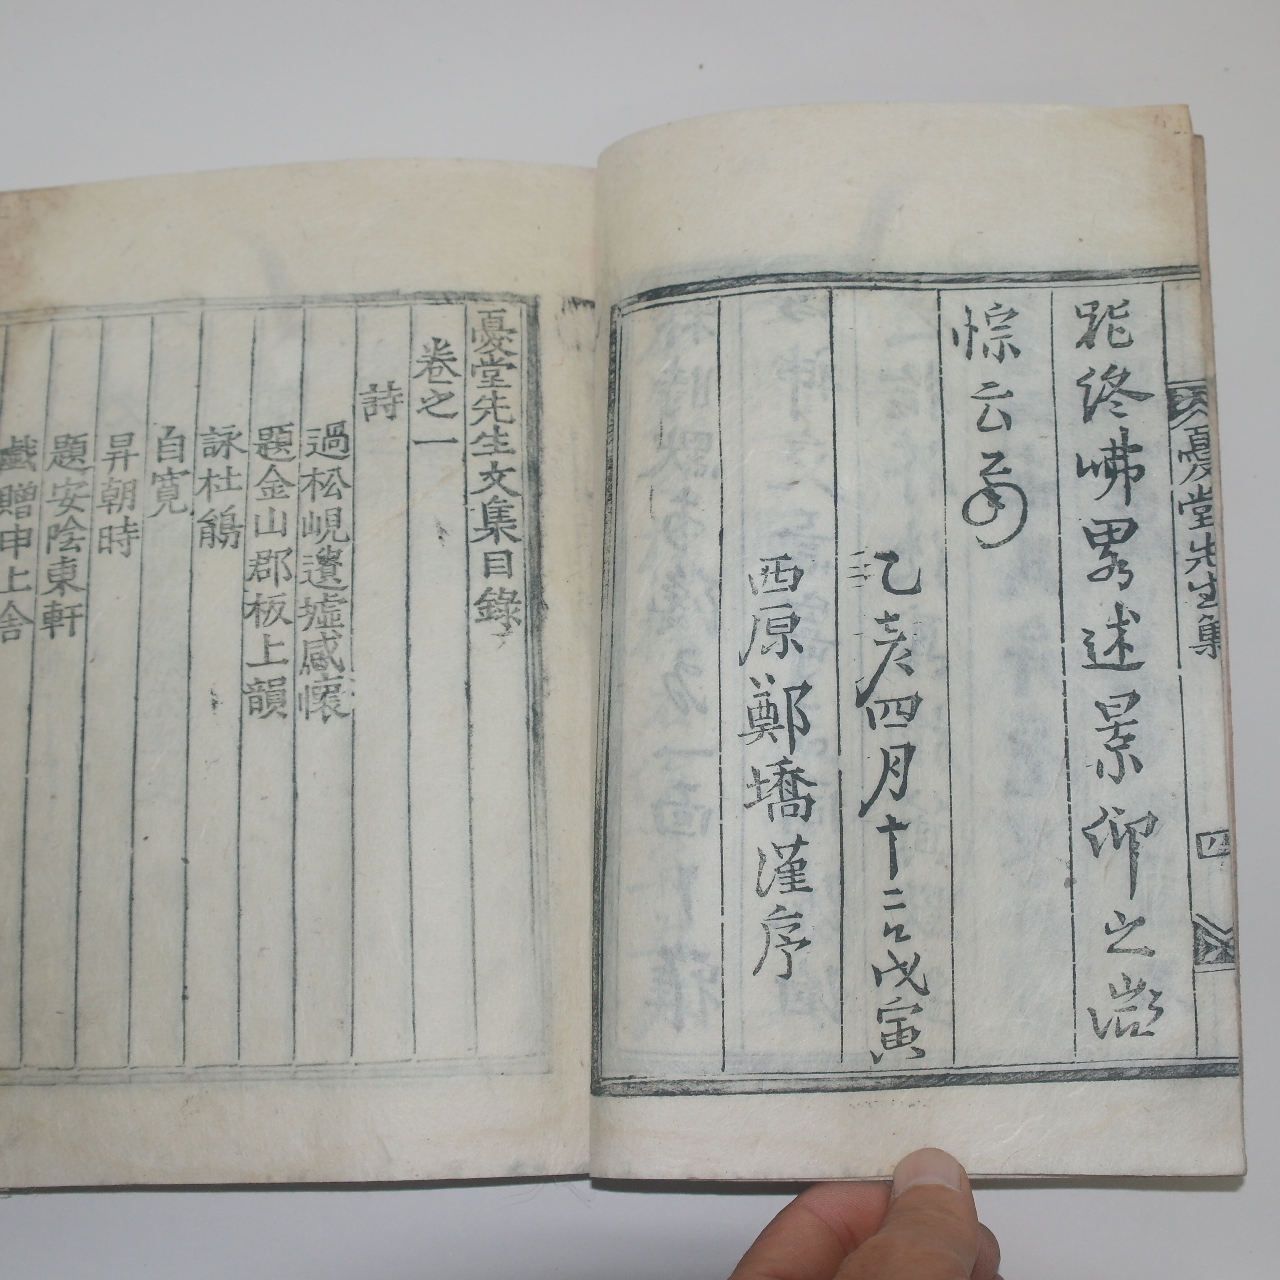 憂堂先生集
四
終岪畧述景仰之
悰云爾
己亥四月十二日戊寅
西原鄭墧謹序
憂堂先生文集目錄
卷之一
詩
過松峴遺墟感懷
題金山郡板上韻
詠杜鵑
自寬
昇朝時
題安陰東軒
戲贈申上舍